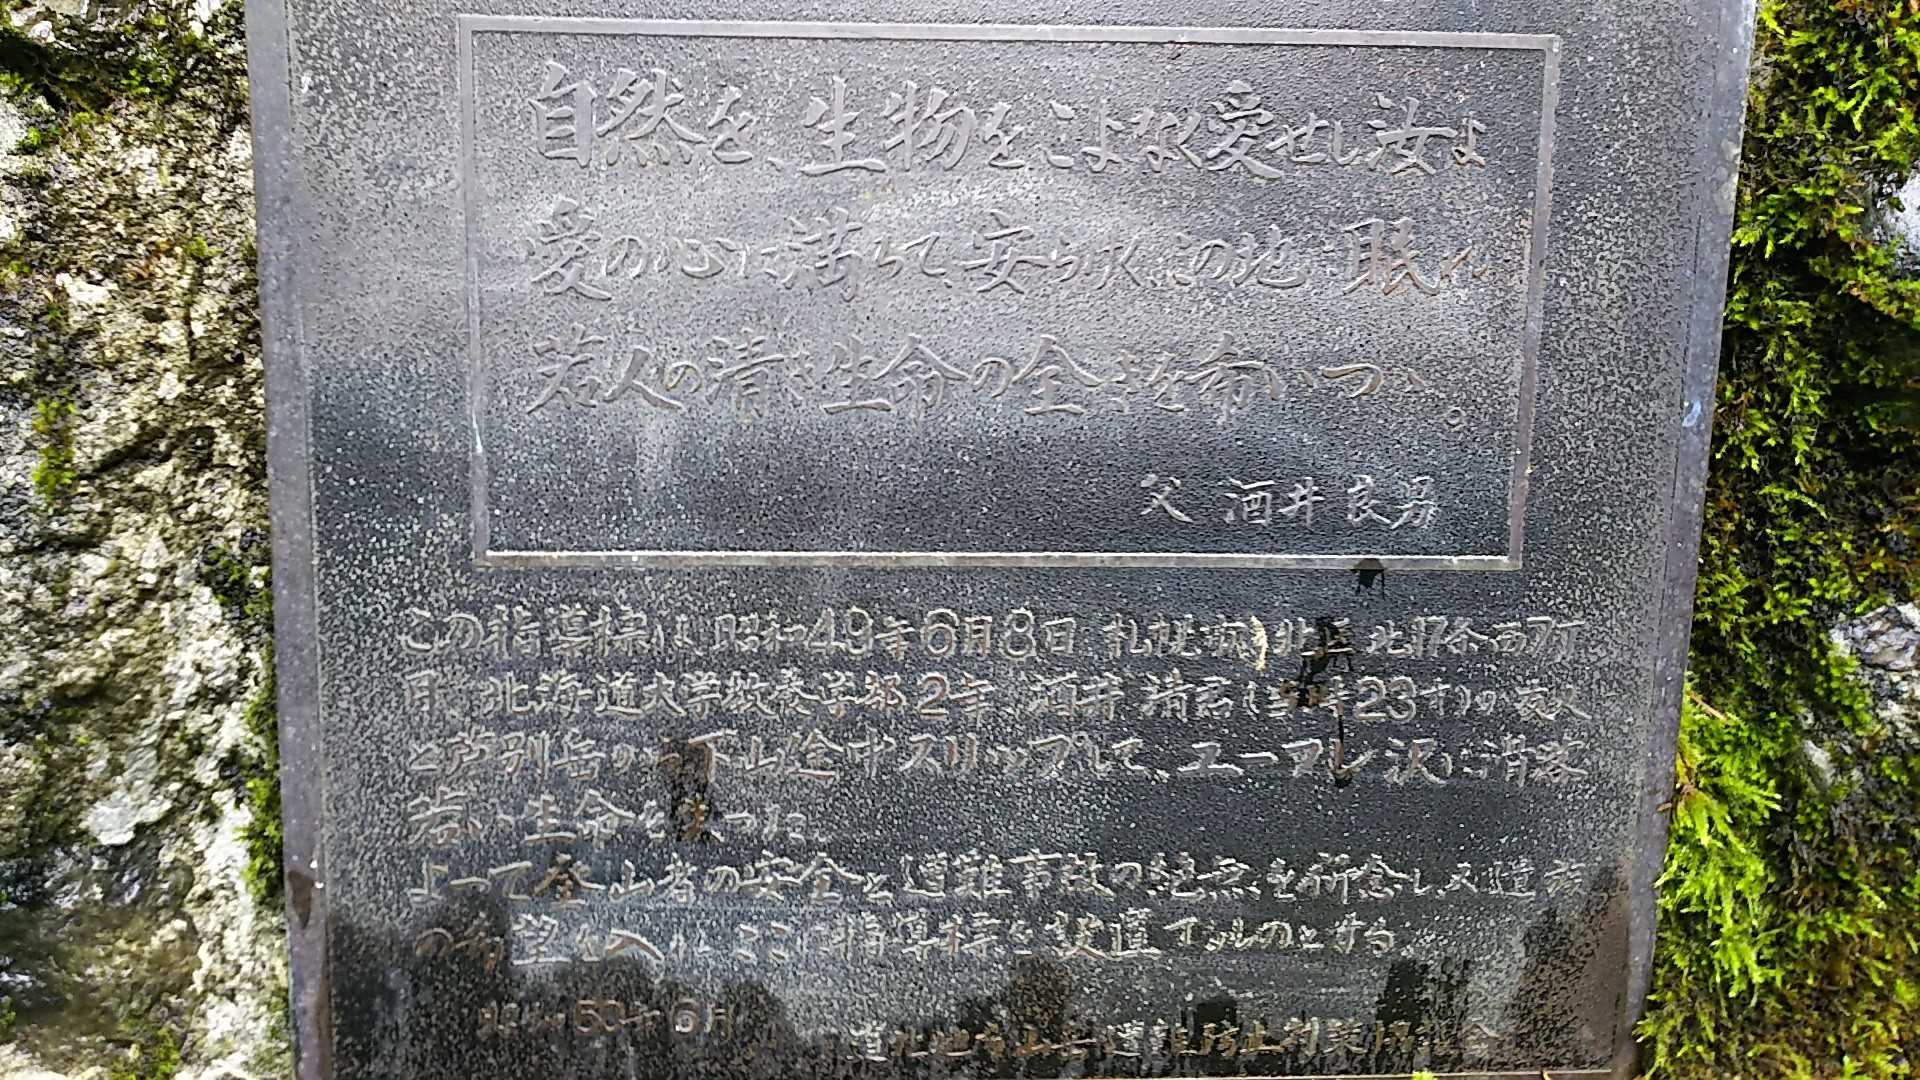 自然を、生物をこよなく愛せし汝よ
愛の心に満ちて、安らけくこの地に眠れ
若人の清き生命の全きを希いつゝ。
父 酒井良男
この指導標は、昭和49年6月8日 札幌市北区北17条西7丁
目、北海道大学教養学部2年 酒井 清 (当時23才)が
と芦別岳から下山途中スリップして、ユーフレ沢に滑落
若い生命を失った。
よって登山者の安全と遭難事故の絶無を祈念し又遺族
の希望を入れ、ここに指導標を設置するものとする。
昭和50年6月
道北地方山岳遭難防止対策協議会